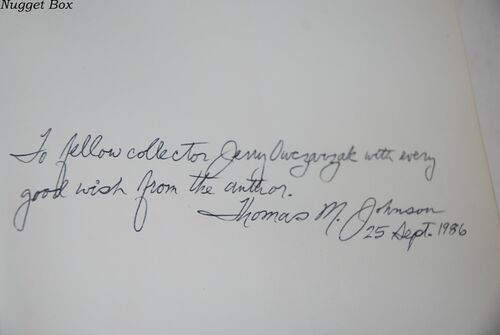 Nugget Box
To fellow collector Jerry Owczarzak with every
good wish from the author.
Thomas M. Johnson
25 Sept. 1986